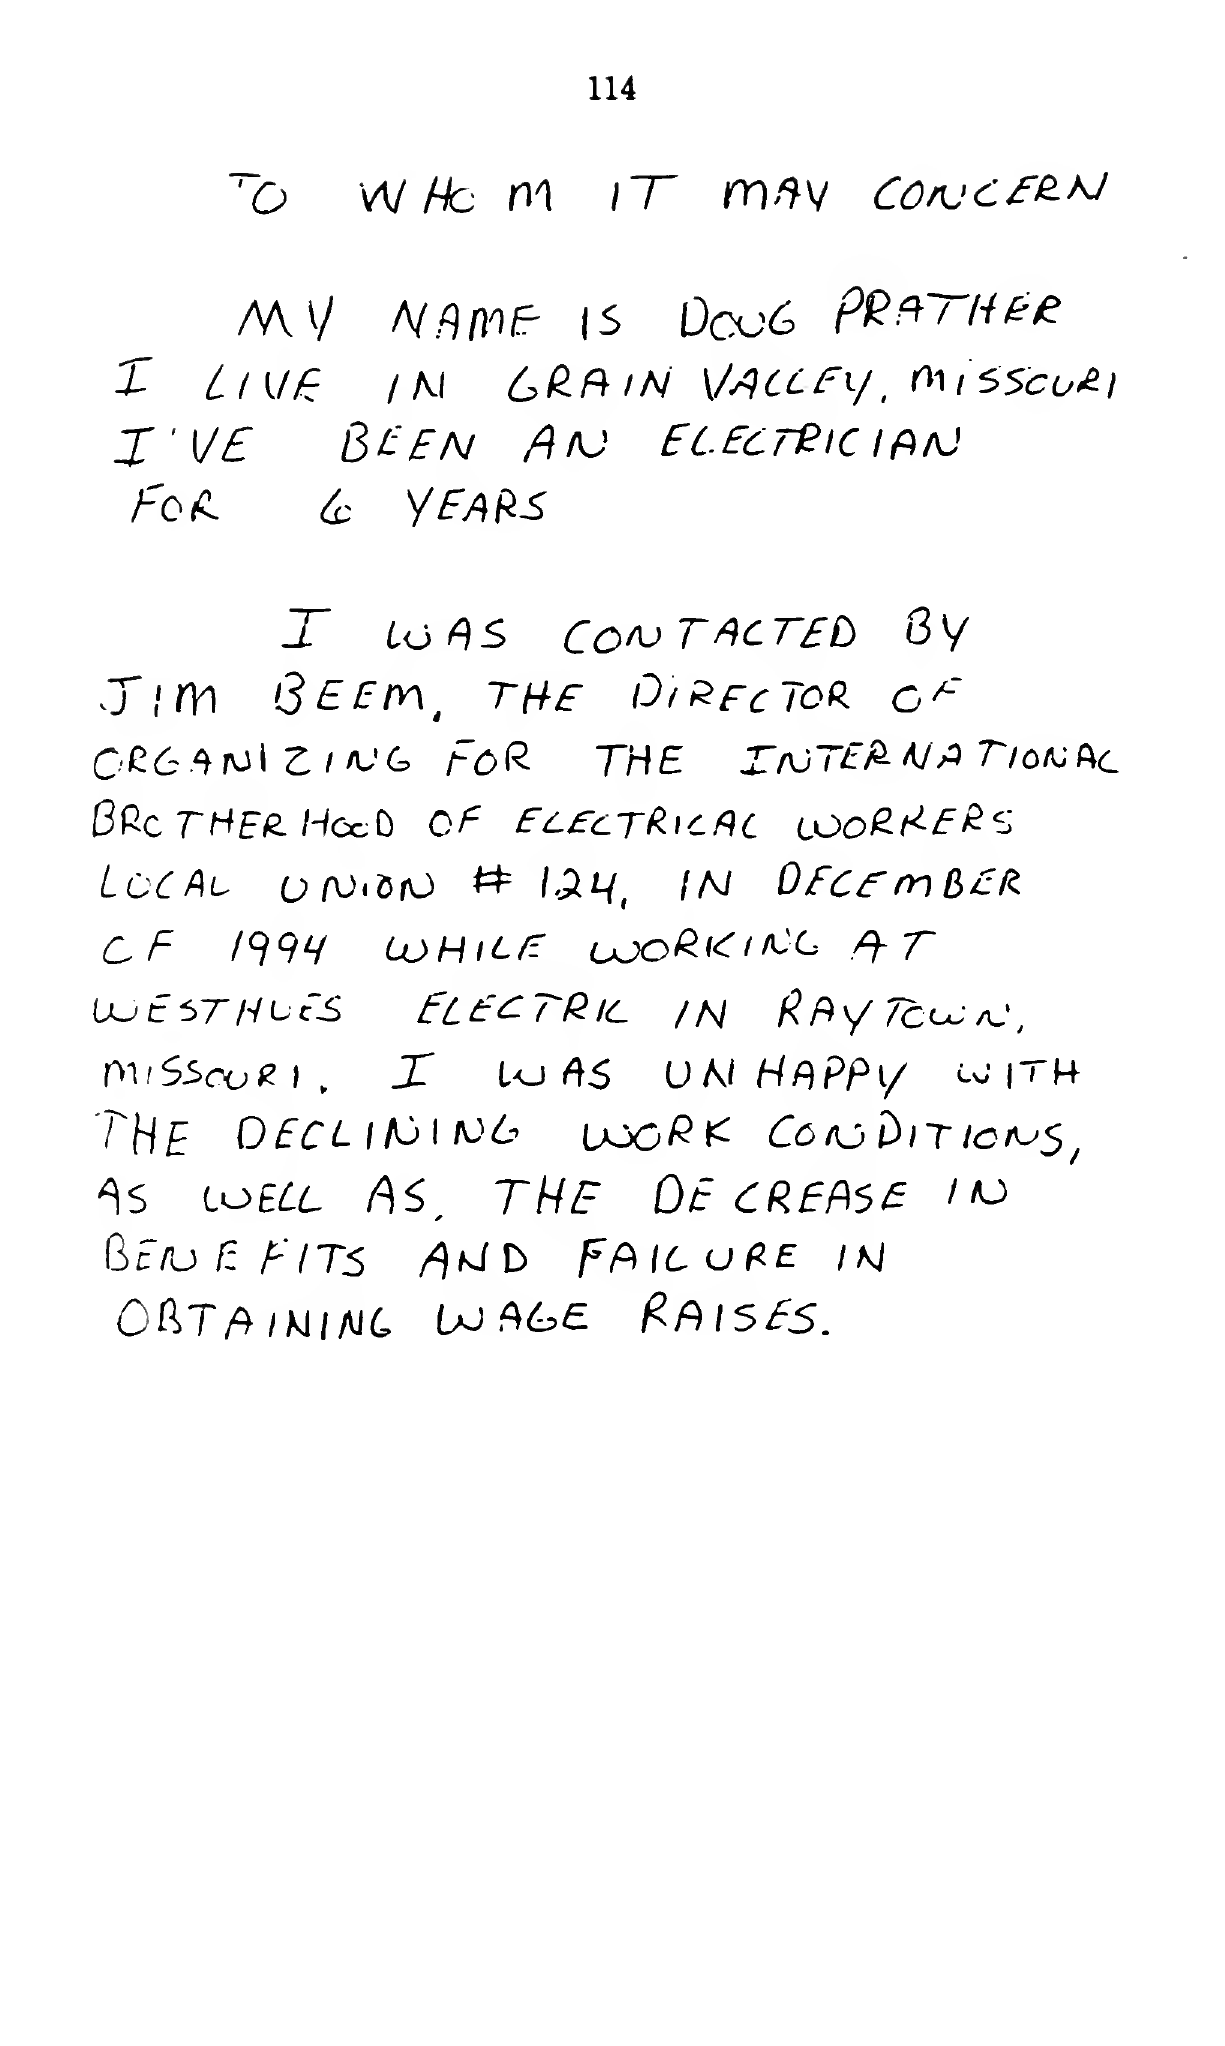 114
TO WHOM IT MAY CONCERN
MY NAME IS DOUG PRATHER
I LIVE IN GRAIN VALLEY, MISSOURI
I'VE BEEN AN ELECTRICIAN
FOR 6 YEARS
I WAS CONTACTED BY
JIM BEEM, THE DIRECTOR OF
ORGANIZING FOR THE INTERNATIONAL
BROTHERHOOD OF ELECTRICAL WORKERS
LOCAL UNION # 124, IN DECEMBER
OF 1994 WHILE WORKING AT
WESTHUES ELECTRIC IN RAYTOWN,
MISSOURI. I WAS UNHAPPY WITH
THE DECLINING WORK CONDITIONS,
AS WELL AS, THE DECREASE IN
BENEFITS AND FAILURE IN
OBTAINING WAGE RAISES.